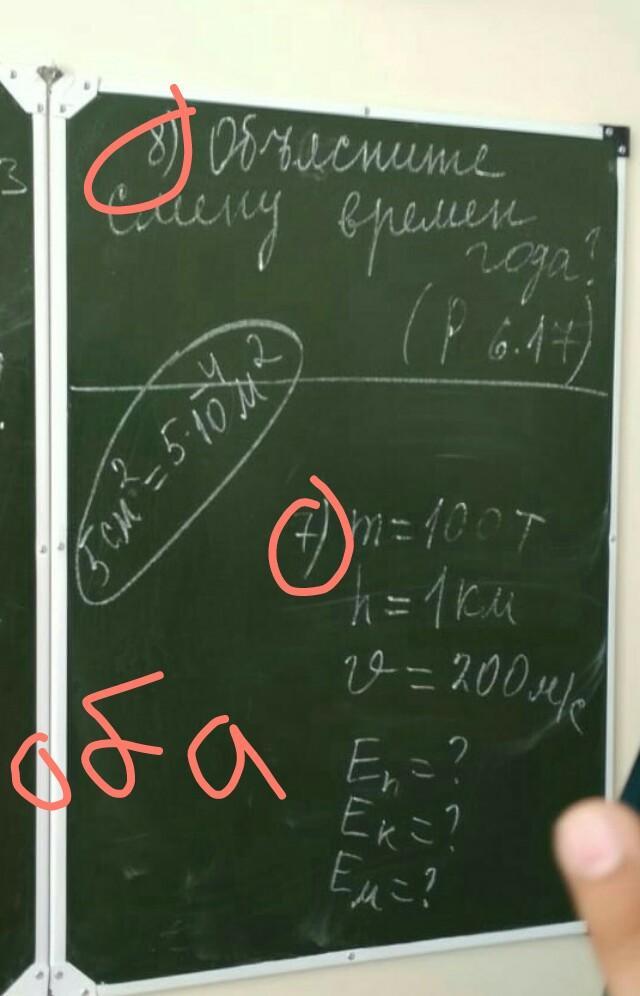 8) Объясните
смену времен
года?
(Р 6.17)
5 см² = 5·10⁻⁴ м²
7) m = 100 т
h = 1 км
𝜗 = 200 м/с
Eп = ?
Eк = ?
Eм = ?
оба
3